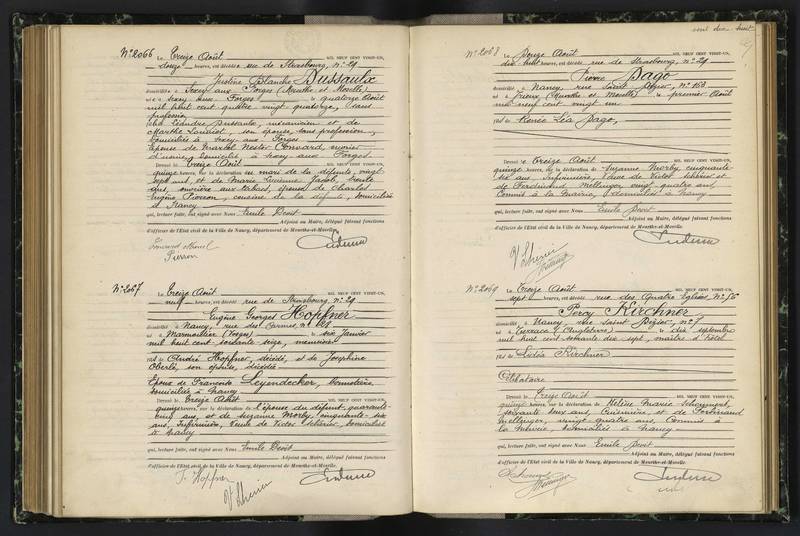 N° 2066 Le Treize Août MIL NEUF CENT VINGT-UN,
douze heures, est décédée rue de Strasbourg, N° 29
Justine Blanche Dussaulx
domiciliée à Jœuf aux Forges (Meurthe et Moselle)
née à aux Forges le quatorze Août
mil huit cent quatre vingt quatorze, sans
profession
fille Léandre Dussaulx, mécanicien et de
Marthe son épouse, sans profession,
domiciliés à aux Forges
Épouse de Marcel Nestor ouvrier
d'usine, domicilié à aux Forges
Dressé le Treize Août MIL NEUF CENT VINGT-UN,
quinze heures, sur la déclaration du mari de la défunte, vingt
sept ans, et de Marie Lucienne Jacob, trente
ans, ouvrière aux tabacs, épouse de Charles
Eugène Pierron, cousine de la défunte, domiciliée
à Nancy
qui, lecture faite, ont signé avec Nous Emile
Adjoint au Maire, délégué faisant fonctions
d'officier de l'Etat civil de la Ville de Nancy, département de Meurthe-et-Moselle.
Pierron
N° 2067 Le Treize Août MIL NEUF CENT VINGT-UN,
neuf heures, est décédé rue de Strasbourg, N° 29
Eugène Georges Hopfner
domicilié à Nancy, rue des Carmes N°
né à Marmoutier (Vosges) le six Janvier
mil huit cent soixante seize, menuisier
fils de André Hopfner, décédé, et de Joséphine
Oberlé, son épouse, décédée
Époux de Françoise Leyendecker,
domiciliée à Nancy
Dressé le Treize Août MIL NEUF CENT VINGT-UN,
quinze heures, sur la déclaration de l'épouse du défunt, quarante
ans, et de Suzanne Morby, cinquante six
ans, infirmière, Veuve de Victor domiciliées
à Nancy
qui, lecture faite, ont signé avec Nous Emile
Adjoint au Maire, délégué faisant fonctions
d'officier de l'Etat civil de la Ville de Nancy, département de Meurthe-et-Moselle.
Hopfner
cent dix huit
N° 2068 Le Douze Août MIL NEUF CENT VINGT-UN,
dix huit heures, est décédé rue de Strasbourg, N° 29
Pierre Dago
domicilié à Nancy, rue Saint Dizier, N° 153
né à Briey (Meurthe et Moselle) le premier Août
mil neuf cent vingt un
fils de Renée Léa Dago,
Dressé le Treize Août MIL NEUF CENT VINGT-UN,
quinze heures, sur la déclaration de Suzanne Morby cinquante
six ans, infirmière, Veuve de Victor et
de Ferdinand Mellinger, vingt quatre ans,
Commis à la Mairie, domiciliés à Nancy
qui, lecture faite, ont signé avec Nous Emile
Adjoint au Maire, délégué faisant fonctions
d'officier de l'Etat civil de la Ville de Nancy, département de Meurthe-et-Moselle.
N° 2069 Le Treize Août MIL NEUF CENT VINGT-UN,
sept heures, est décédé rue des Quatre Eglises, N°
Percy Kirchner
domicilié à Nancy rue Saint Dizier, N° 9
né à (Angleterre) le dix septembre
mil huit cent soixante dix sept, maître d'hôtel
fils de Lidia Kirchner
Célibataire
Dressé le Treize Août MIL NEUF CENT VINGT-UN,
quinze heures, sur la déclaration de Hélène Marie
soixante deux ans, cuisinière, et de Ferdinand
Mellinger, vingt quatre ans, Commis à
la Mairie, domiciliés à Nancy
qui, lecture faite, ont signé avec Nous Emile
Adjoint au Maire, délégué faisant fonctions
d'officier de l'Etat civil de la Ville de Nancy, département de Meurthe-et-Moselle.